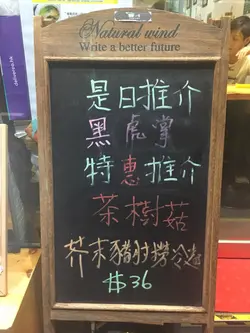 Natural wind
Write a better future
是日推介
黑虎掌
特惠推介
茶樹菇
芥末豬肘撈冷麵
$36